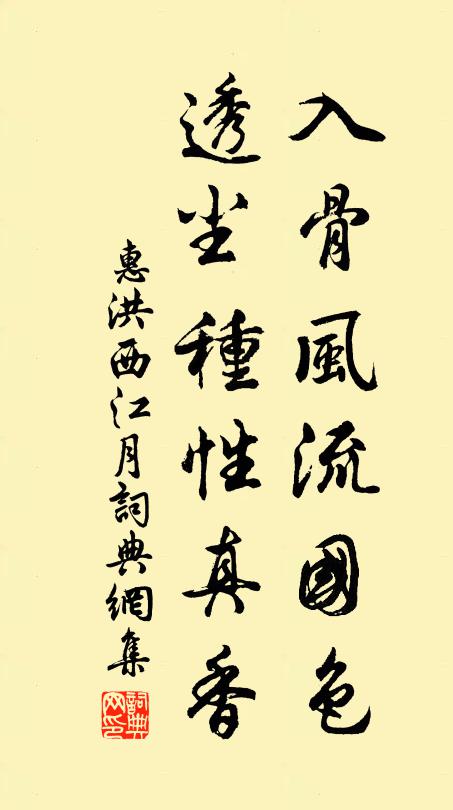 入骨風流國色
透尘種性真香
惠洪西江月詞典網集
詞典网印